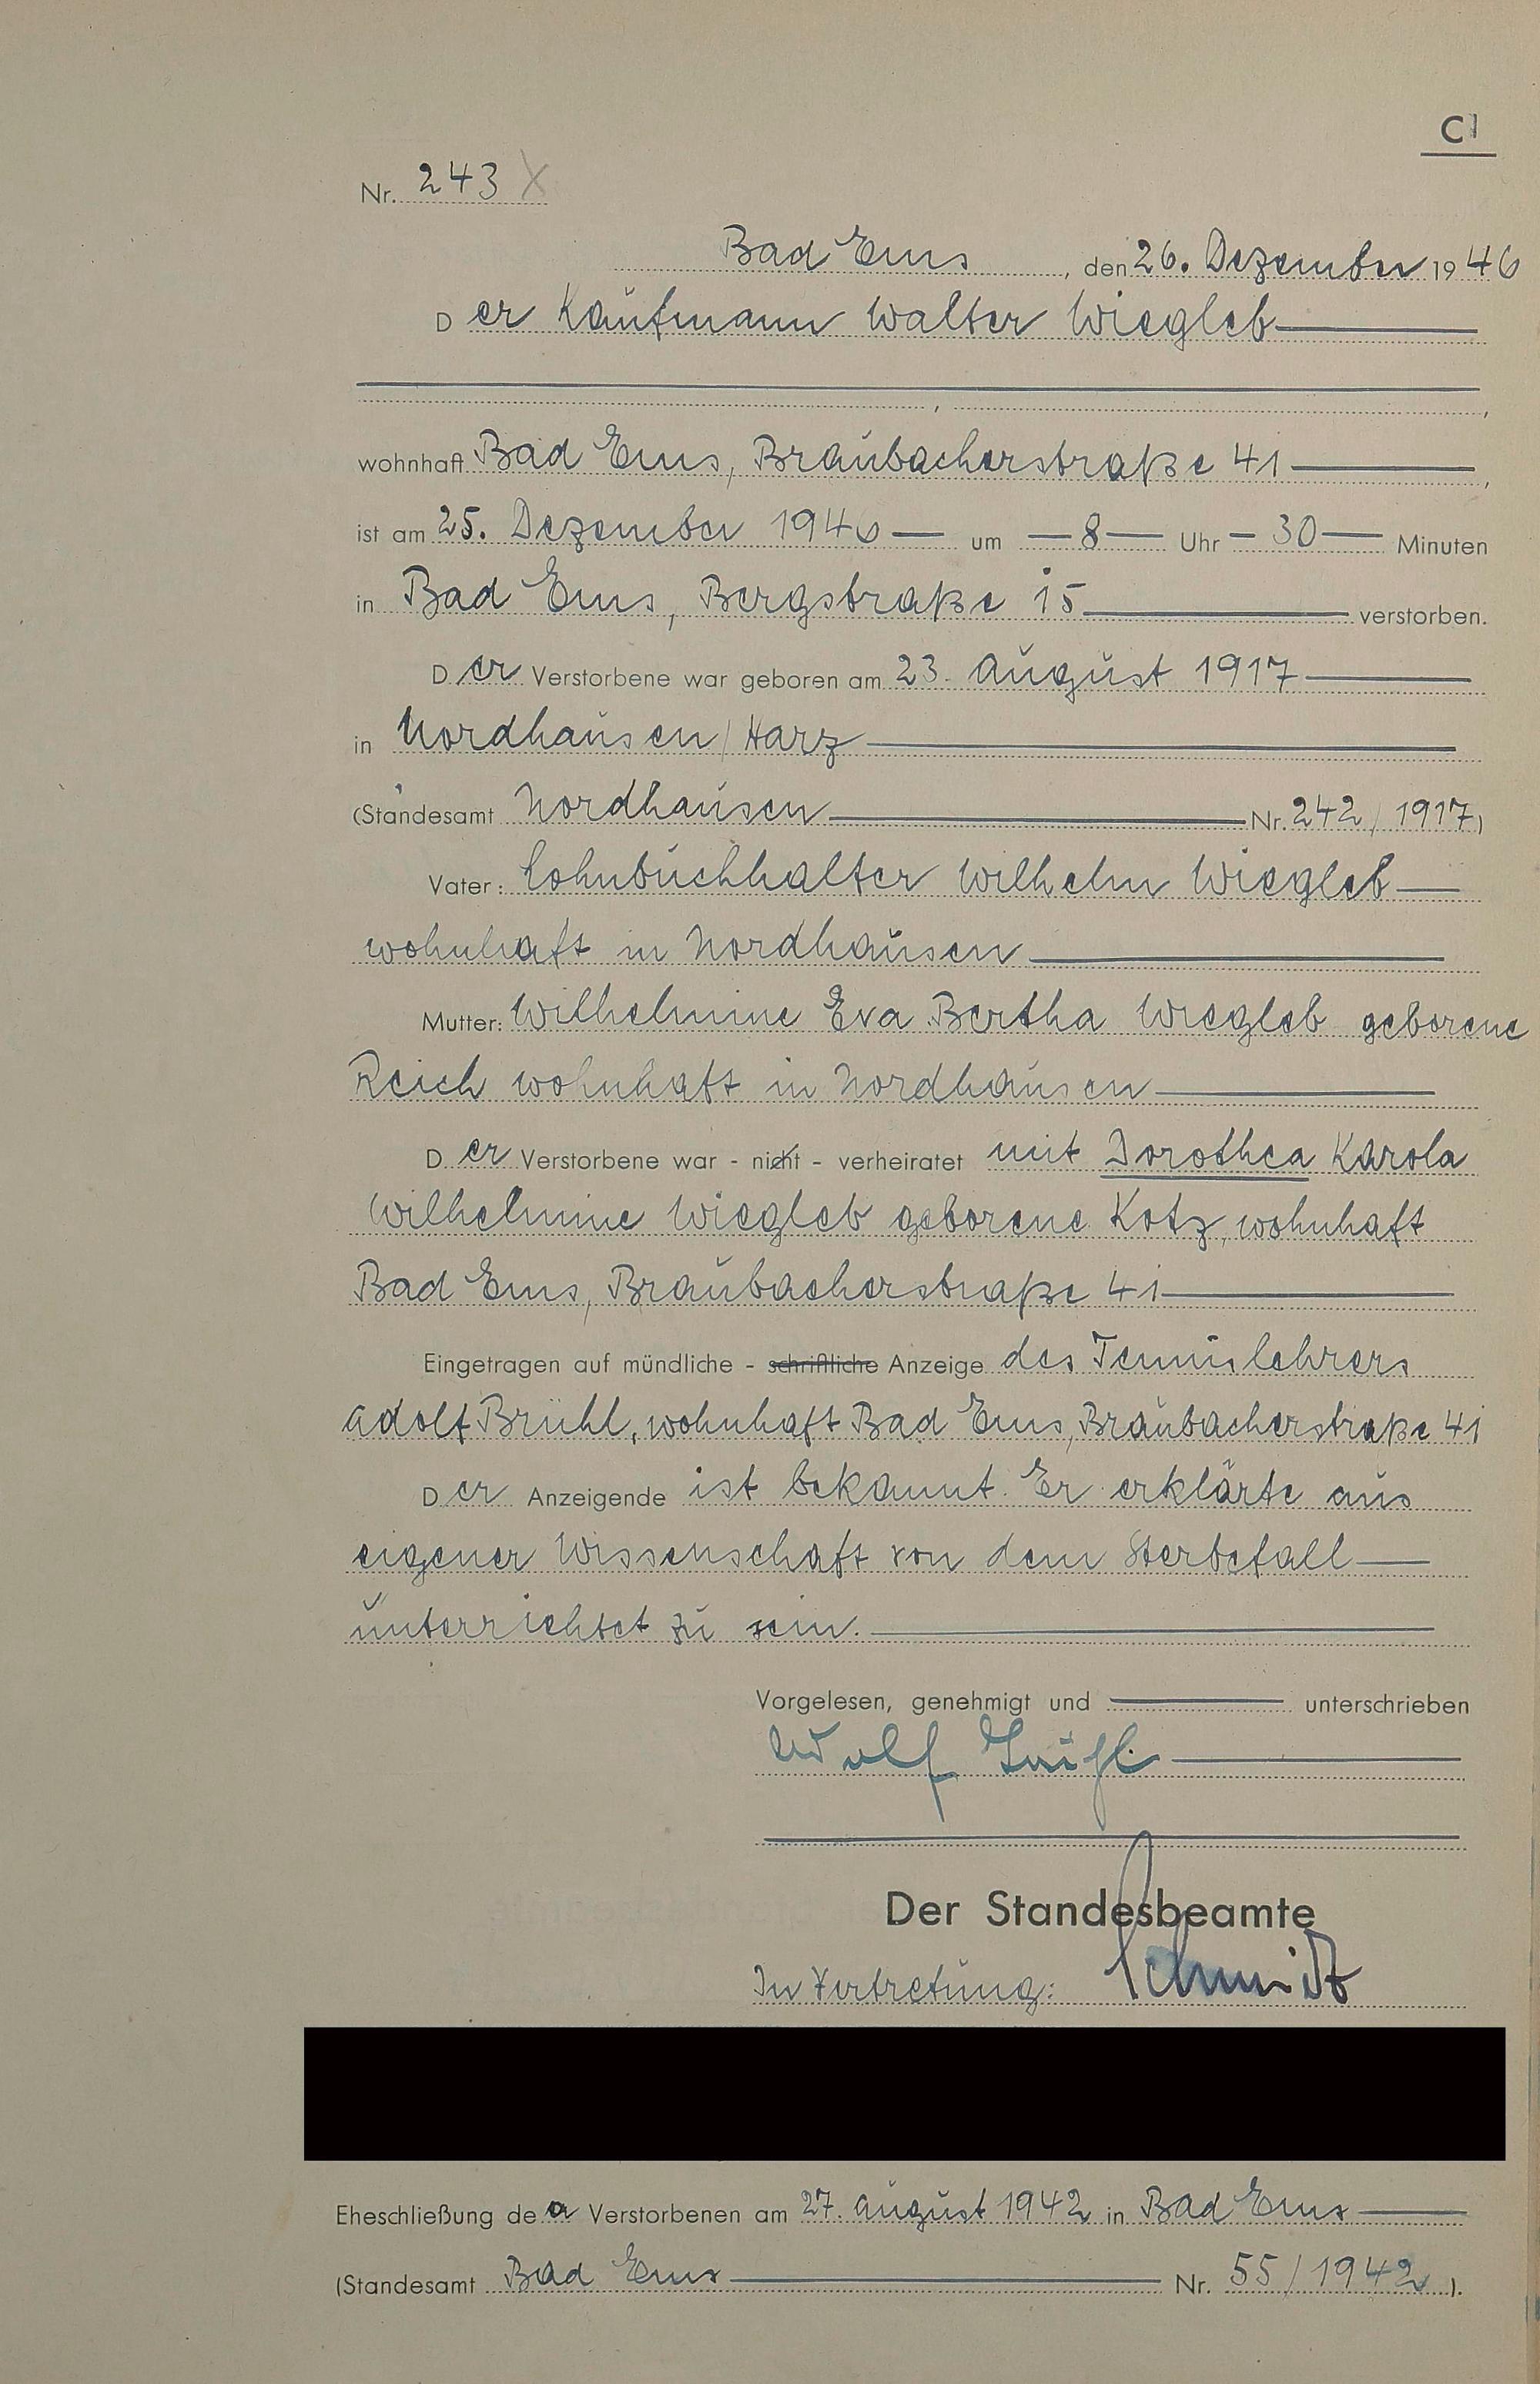 C1
Nr. 243 X
Bad Ems, den 26. Dezember 1946
Der Kaufmann Walter Wiegleb
wohnhaft Bad Ems, Braubacherstraße 41
ist am 25. Dezember 1946 um 8 Uhr 30 Minuten
in Bad Ems, Bergstraße 15 verstorben.
Der Verstorbene war geboren am 23. August 1917
in Nordhausen/Harz
(Standesamt Nordhausen Nr. 242/1917)
Vater: Lohnbuchhalter Wilhelm Wiegleb
wohnhaft in Nordhausen
Mutter: Wilhelmine Eva Bertha Wiegleb geborene
Reich wohnhaft in Nordhausen
Der Verstorbene war - nicht - verheiratet mit Dorothea Karola
Wilhelmine Wiegleb geborene Kotz, wohnhaft
Bad Ems, Braubacherstraße 41
Eingetragen auf mündliche - schriftliche Anzeige des Tennislehrers
Adolf Brühl, wohnhaft Bad Ems, Braubacherstraße 41
Der Anzeigende ist bekannt. Er erklärte aus
eigener Wissenschaft von dem Sterbefall
unterrichtet zu sein.
Vorgelesen, genehmigt und unterschrieben
Der Standesbeamte
In Vertretung: Schmidt
Eheschließung des Verstorbenen am 27. August 1942 in Bad Ems
(Standesamt Bad Ems Nr. 55/1942).